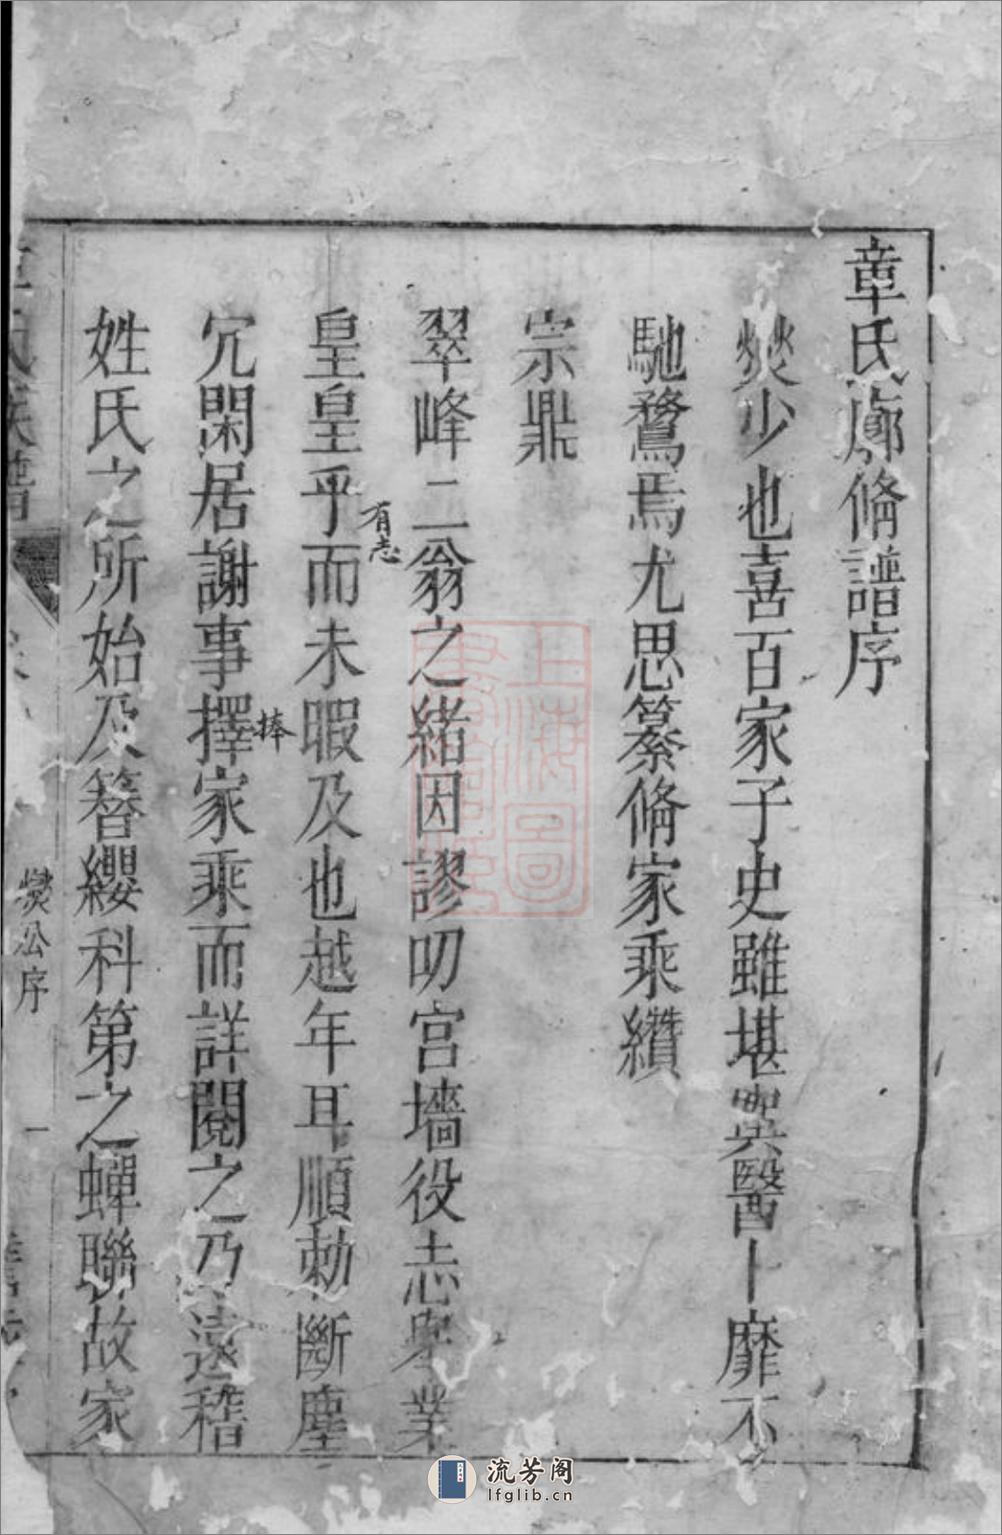 章氏廓脩譜序
燮少也喜百家子史雖堪輿醫卜靡不
馳騖焉尤思纂脩家乘纘
宗鼎
翠峰二翁之緒因謬叨宫墻役志舉業
皇皇乎而未暇及也越年耳順勅斷塵
有志
冗閑居謝事擇家乘而詳閱之乃遠稽
捧
姓氏之所始及簪纓科第之蟬聯故家
章氏族譜
燮公序
一
上海圖
流芳阁
lfglib.cn